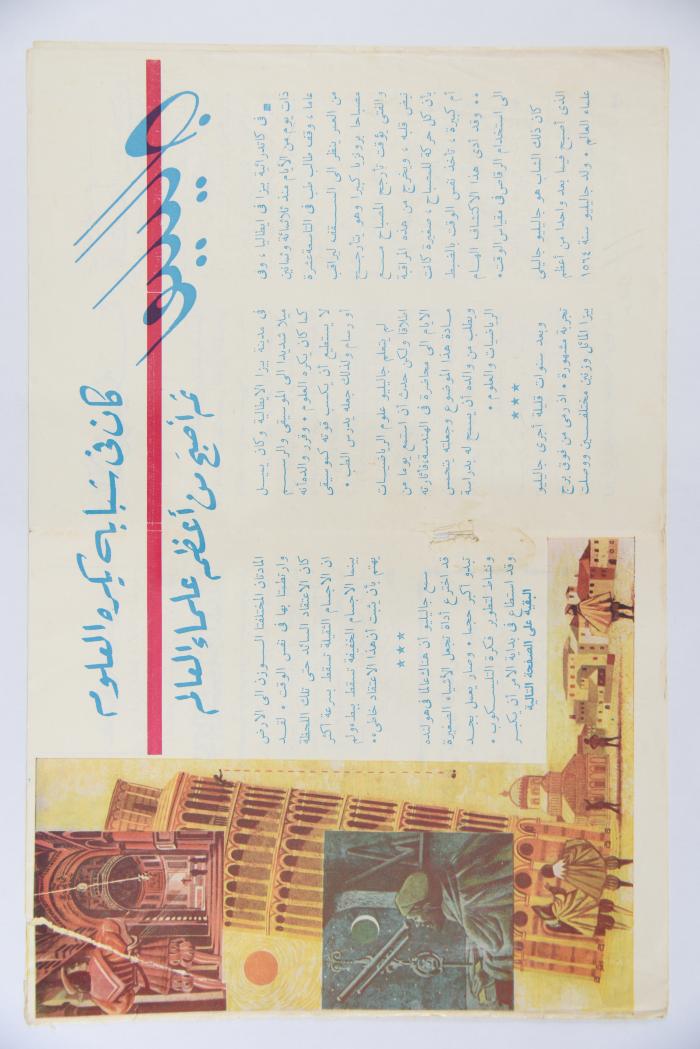 جاليليو
كان في شبابه يكره العلوم
ثم أصبح من أعظم علماء العالم
في كاتدرائية بيزا في ايطاليا ، وفي
ذات يوم من الأيام منذ ثلاثمائة وثمانين
عاما ، وقف طالب طب في التاسعة عشرة
من العمر ينظر الى السقف ليراقب
مصباحا برونزيا كبيرا وهو يتأرجح
والفتى يؤقت تأرجح المصباح مع
نبض قلبه ، ويخرج من هذه المراقبة
بأن كل حركة للمصباح ، صغيرة كانت
أم كبيرة ، تأخذ نفس الوقت بالضبط
٠٠ وقد أدى هذا الاكتشاف الهام
الى استخدام الرقاص في مقياس الوقت ٠
كان ذلك الشاب هو جاليليو جاليلي
الذي أصبح فيما بعد واحدا من أعظم
علماء العالم ٠ ولد جاليليو سنة ١٥٦٤
في مدينة بيزا الايطالية وكان يميل
ميلا شديدا الى الموسيقى والرسم
كما كان يكره العلوم ٠ وقرر والده أنه
لا يستطيع أن يكسب قوته كموسيقي
أو رسام ولذلك جعله يدرس الطب ٠
لم يتعلم جاليليو علوم الرياضيات
اطلاقا ولكن حدث ان استمع يوما من
الايام الى محاضرة في الهندسة ، فأثارته
مادة هذا الموضوع وجعلته يتحمس
ويطلب من والده أن يسمح له بدراسة
الرياضيات والعلوم ٠
★★★
وبعد سنوات قليلة أجرى جاليليو
تجربة مشهورة ٠ اذ رمى من فوق برج
بيزا المائل وزنين مختلفين ووصلت
المادتان المختلفتا الوزن الى الارض
وارتطمتا بها في نفس الوقت ٠ لقد
كان الاعتقاد السائد حتى تلك اللحظة
ان الاجسام الثقيلة تسقط بسرعة أكثر
بينما الاجسام الخفيفة تسقط ببطء ولم
يهتم بأن يثبت ان هذا الاعتقاد خاطىء ٠
★★★
سمع جاليليو ان هناك عالما في هولنده
قد اخترع أداة تجعل الأشياء الصغيرة
تبدو أكبر حجما ٠ وصار يعمل بجد
ونشاط لتطوير فكرة التلسكوب ٠
وقد استطاع في بداية الأمر أن يكبر
البقية على الصفحة التالية